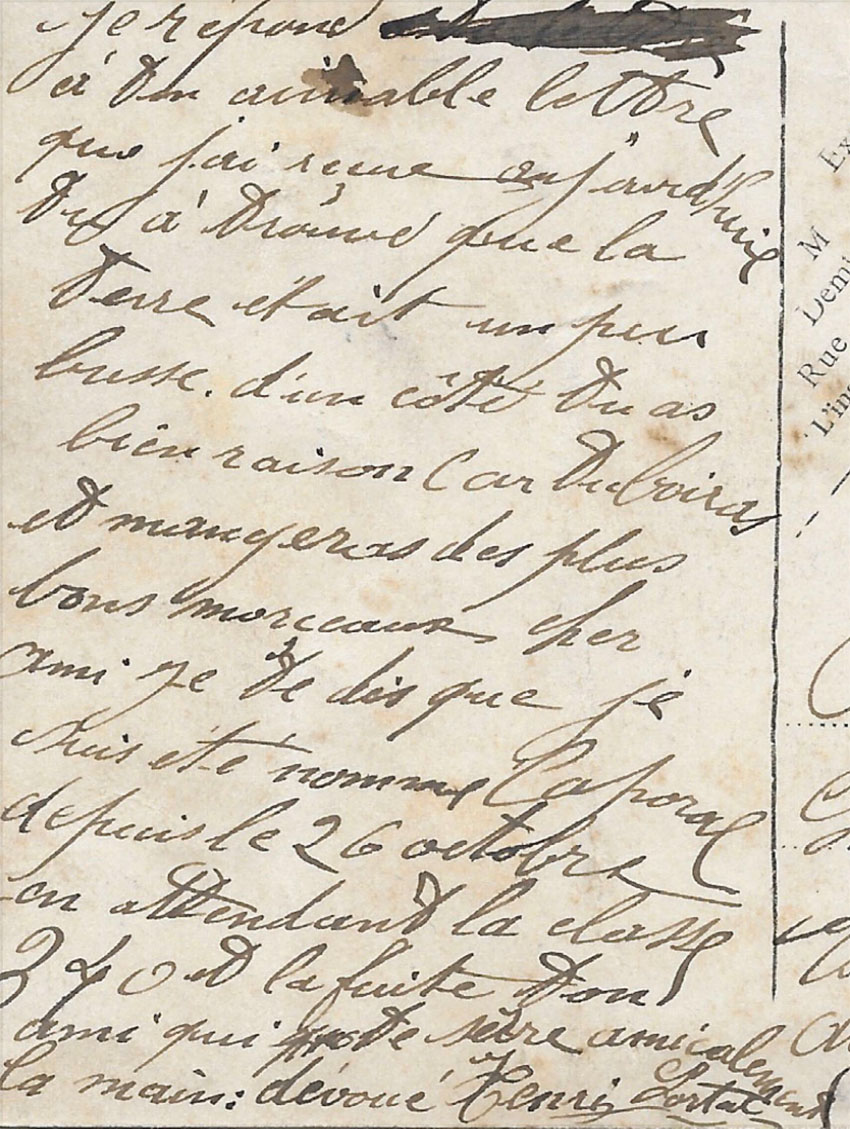 je répond
à ton aimable lettre
que j'ai reçue aujourd'huie
Tu à trouvé que la
Terre était un peu
busse. d'un côté tu as
bien raison Car tu boiras
et mangeras des plus
bons morceaux cher
ami je te dis que je
suis été nommé Caporal
depuis le 26 octobre
en attendant la classe
340 et la fuite ton
ami qui te serre amicalement
la main: dévoué Henri Portal
Ex
M
Demi
Rue
L'ins